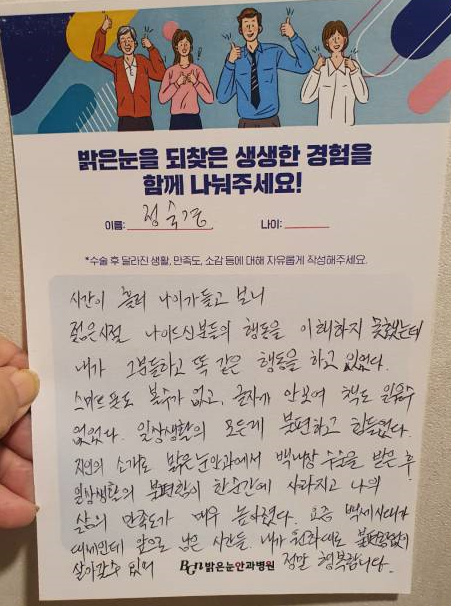 밝은눈을 되찾은 생생한 경험을
함께 나눠주세요!
이름: 정숙경 나이:
*수술 후 달라진 생활, 만족도, 소감 등에 대해 자유롭게 작성해주세요.
시간이 흘러 나이가들고 보니
젊은시절 나이드신분들의 행동을 이해하지 못했는데
내가 그분들하고 똑 같은 행동을 하고 있었다.
스마트폰도 볼수가 없고, 글자가 안보여 책도 읽을수
없었다. 일상생활의 모든게 불편하고 힘들었다.
지인의 소개로 밝은눈안과에서 백내장 수술을 받은 후
일상생활의 불편함이 한순간에 사라지고 나의
삶의 만족도가 매우 높아졌다. 요즘 백세시대가
대세인데 앞으로 남은 시간들 내가 원하대로 불편함없이
살아갈수 있어 정말 행복합니다.
BGN 밝은눈안과병원